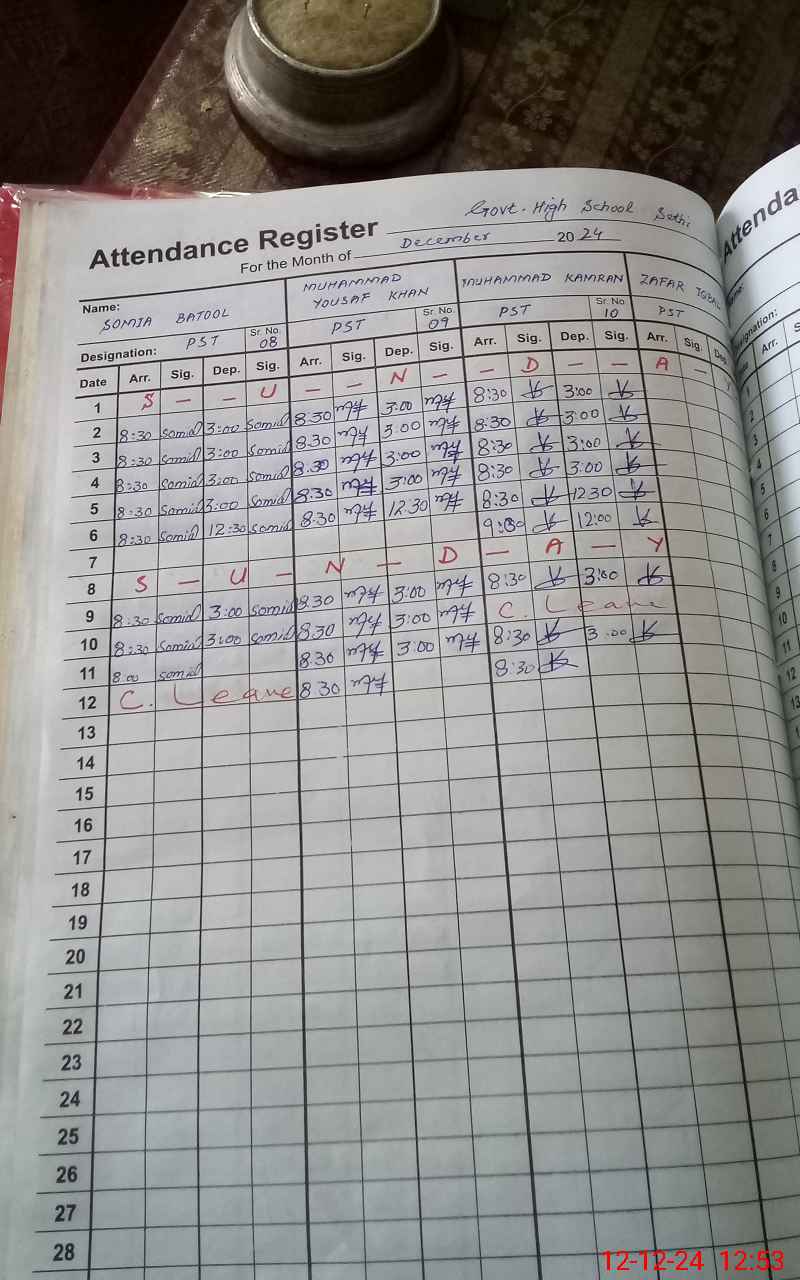 Govt. High School Sethi
Attendance Register
For the Month of December 2024
Name: SOMIA BATOOL MUHAMMAD YOUSAF KHAN MUHAMMAD KAMRAN ZAFAR IQBAL
Designation: PST Sr. No. 08 PST Sr. No. 09 PST Sr. No. 10 PST
Date Arr. Sig. Dep. Sig. Arr. Sig. Dep. Sig. Arr. Sig. Dep. Sig. Arr. Sig. Dep
1 S - - U - - N - - D - - A - Y
2 8:30 Somia 3:00 Somia 8:30 3:00 8:30 3:00
3 8:30 Somia 3:00 Somia 8:30 3:00 8:30 3:00
4 8:30 Somia 3:00 Somia 8:30 3:00 8:30 3:00
5 8:30 Somia 3:00 Somia 8:30 3:00 8:30 3:00
6 8:30 Somia 12:30 Somia 8:30 12:30 8:30 12:30
7 12:00
8 S - U - N - D - A - Y
9 8:30 Somia 3:00 Somia 8:30 3:00 8:30 3:00
10 8:30 Somia 3:00 Somia 8:30 3:00 C. Leave
11 8:00 Somia 8:30 3:00 8:30 3:00
12 C. Leave 8:30 8:30
13
14
15
16
17
18
19
20
21
22
23
24
25
26
27
28
Attenda
12-12-24 12:53